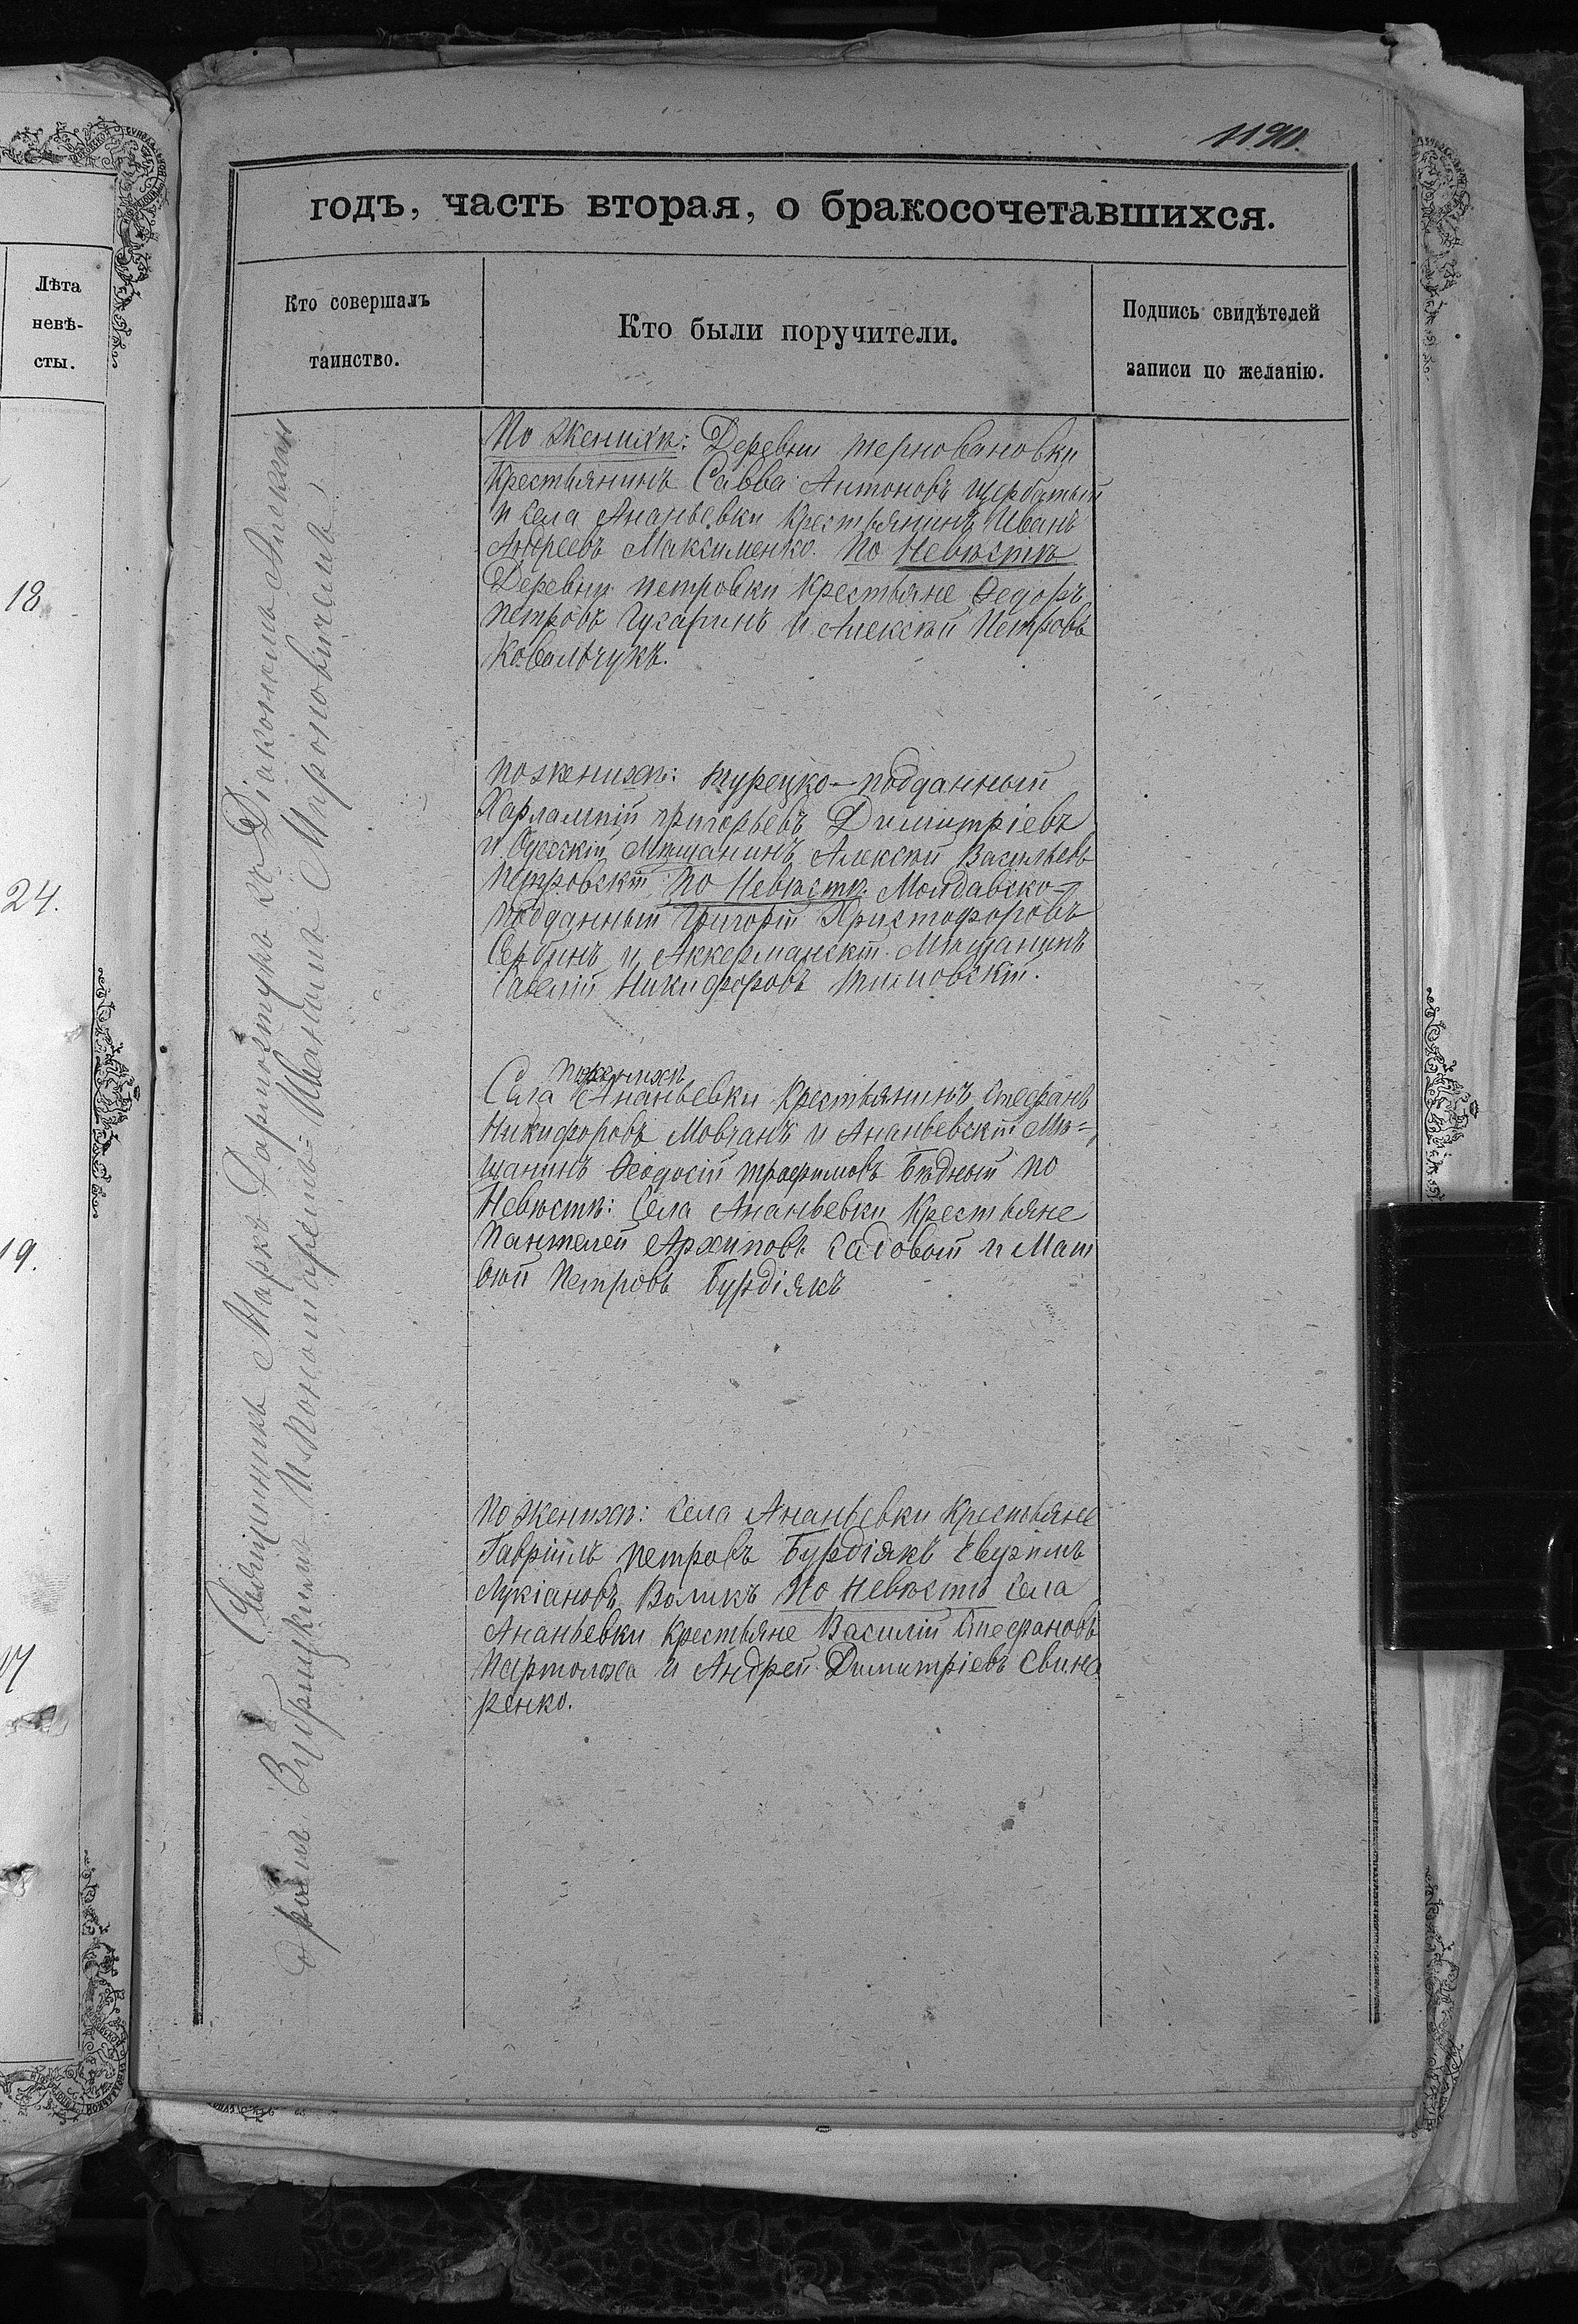 1190.
годъ, часть вторая, о бракосочетавшихся.
Лѣта
невѣ-
сты.
Кто совершалъ
таинство.
Кто были поручители.
Подпись свидѣтелей
записи по желанію.
18
24.
19.
17
Священникъ Маркъ Дармостукъ со Діакономъ Алексѣемъ
Вубрицкимъ и Пономаремъ Иваномъ Мироновичемъ
По женихѣ: Деревни Терновановки
Крестьянинъ Савва Антоновъ Щербатый
и села Ананьевки Крестьянинъ Иванъ
Андреевъ Максименко. По Невѣстѣ
Деревни Петровки Крестьяне Ѳедоръ
Петровъ Гугаринъ и Алексѣй Петровъ
Ковальчукъ.
По женихѣ: Турецко-подданный
Харлампій Григорьевъ Димитріевъ
и Одесскій Мѣщанинъ Алексѣй Васильевъ
Петровскій По Невѣстѣ Молдавско-
подданный Григорій Христофоровъ
Сербинъ и Аккерманскій Мѣщанинъ
Савелій Никифоровъ
По женихѣ
Села Ананьевки Крестьянинъ Стефанъ
Никифоровъ Мовчанъ и Ананьевскій Мѣ-
щанинъ Ѳеодосій Трофимовъ Бѣдный По
Невѣстѣ: Села Ананьевки Крестьяне
Пантелей Архиповъ Садовой и Мат
ѳей Петровъ Бурдіякъ
По женихѣ: Села Ананьевки Крестьяне
Гавріилъ Петровъ Бурдіякъ Евѳимъ
Лукіановъ Воликъ По Невѣстѣ Села
Ананьевки Крестьяне Василій Стефановъ
Партолоха и Андрей Димитріевъ Свина
ренко.